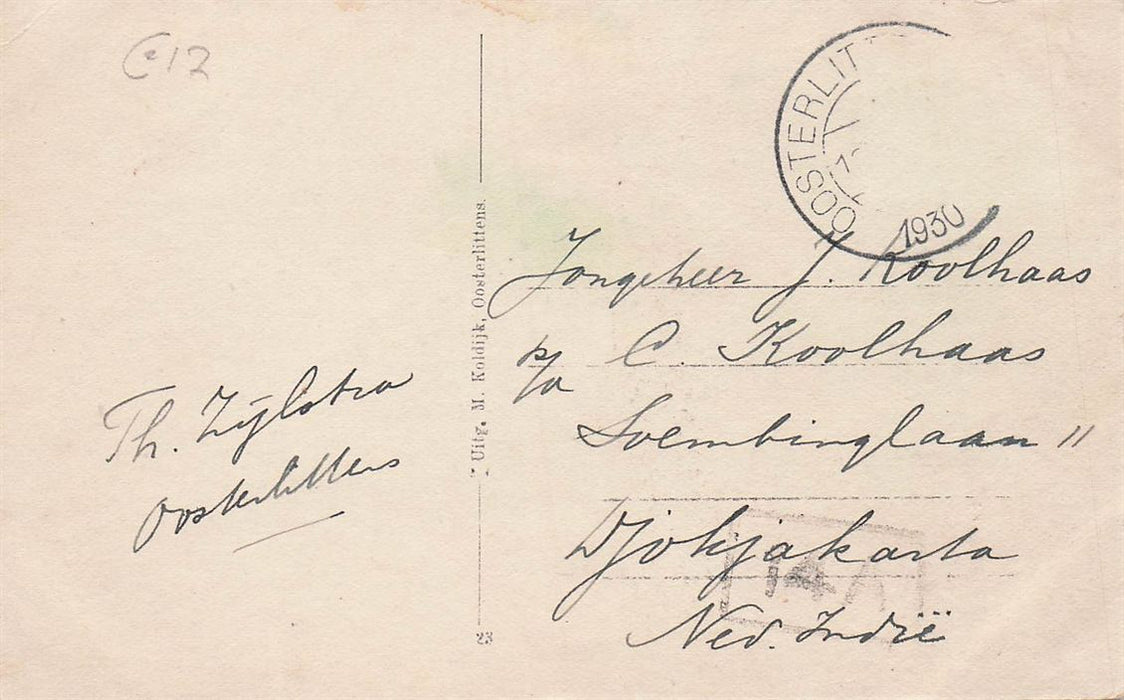 12
Th. Zijlstra
Oosterlittens
Uitg. M. Koldijk, Oosterlittens.
23
OOSTERLIT
1930
Jongeheer J. Koolhaas
p/a C. Koolhaas
Soembinglaan 11
Djokjakarta
Ned. Indië